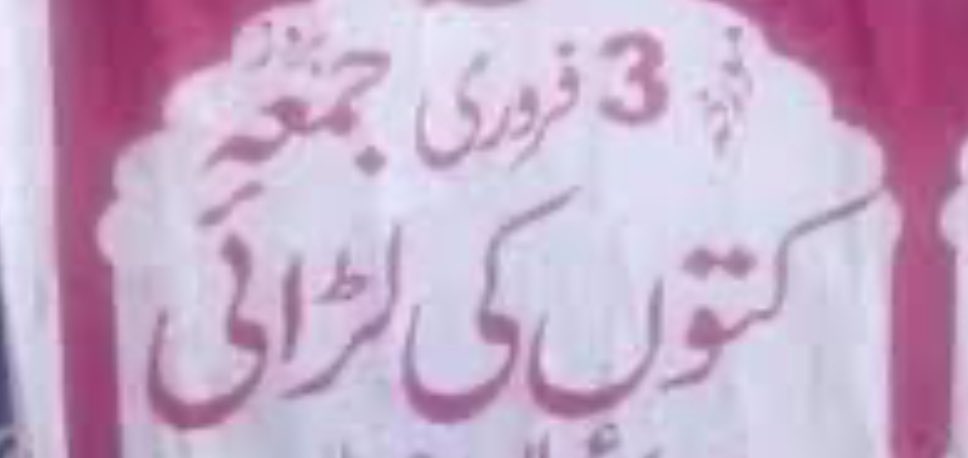 3 فروری بروز جمعہ
کتوں کی لڑائی